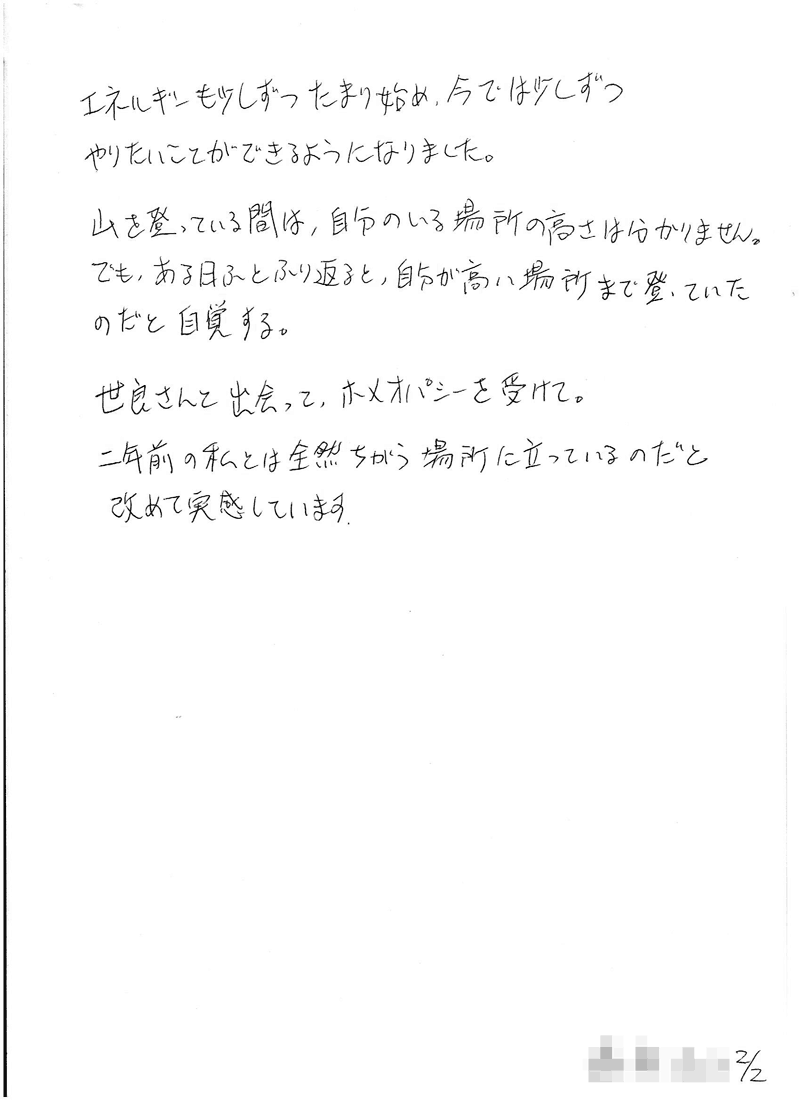 エネルギーも少しずつたまり始め、今では少しずつ
やりたいことができるようになりました。
山を登っている間は、自分のいる場所の高さは分かりません。
でも、ある日ふとふり返ると、自分が高い場所まで登っていた
のだと自覚する。
世良さんと出会って、ホメオパシーを受けて。
二年前の私とは全然ちがう場所に立っているのだと
改めて実感しています。
2/2